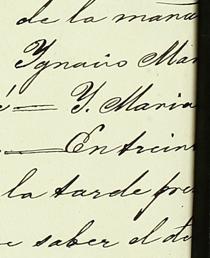 de la maña
Ygnacio Mar
é = Y. Maria
= Entrein
la tarde pre
e saber el de